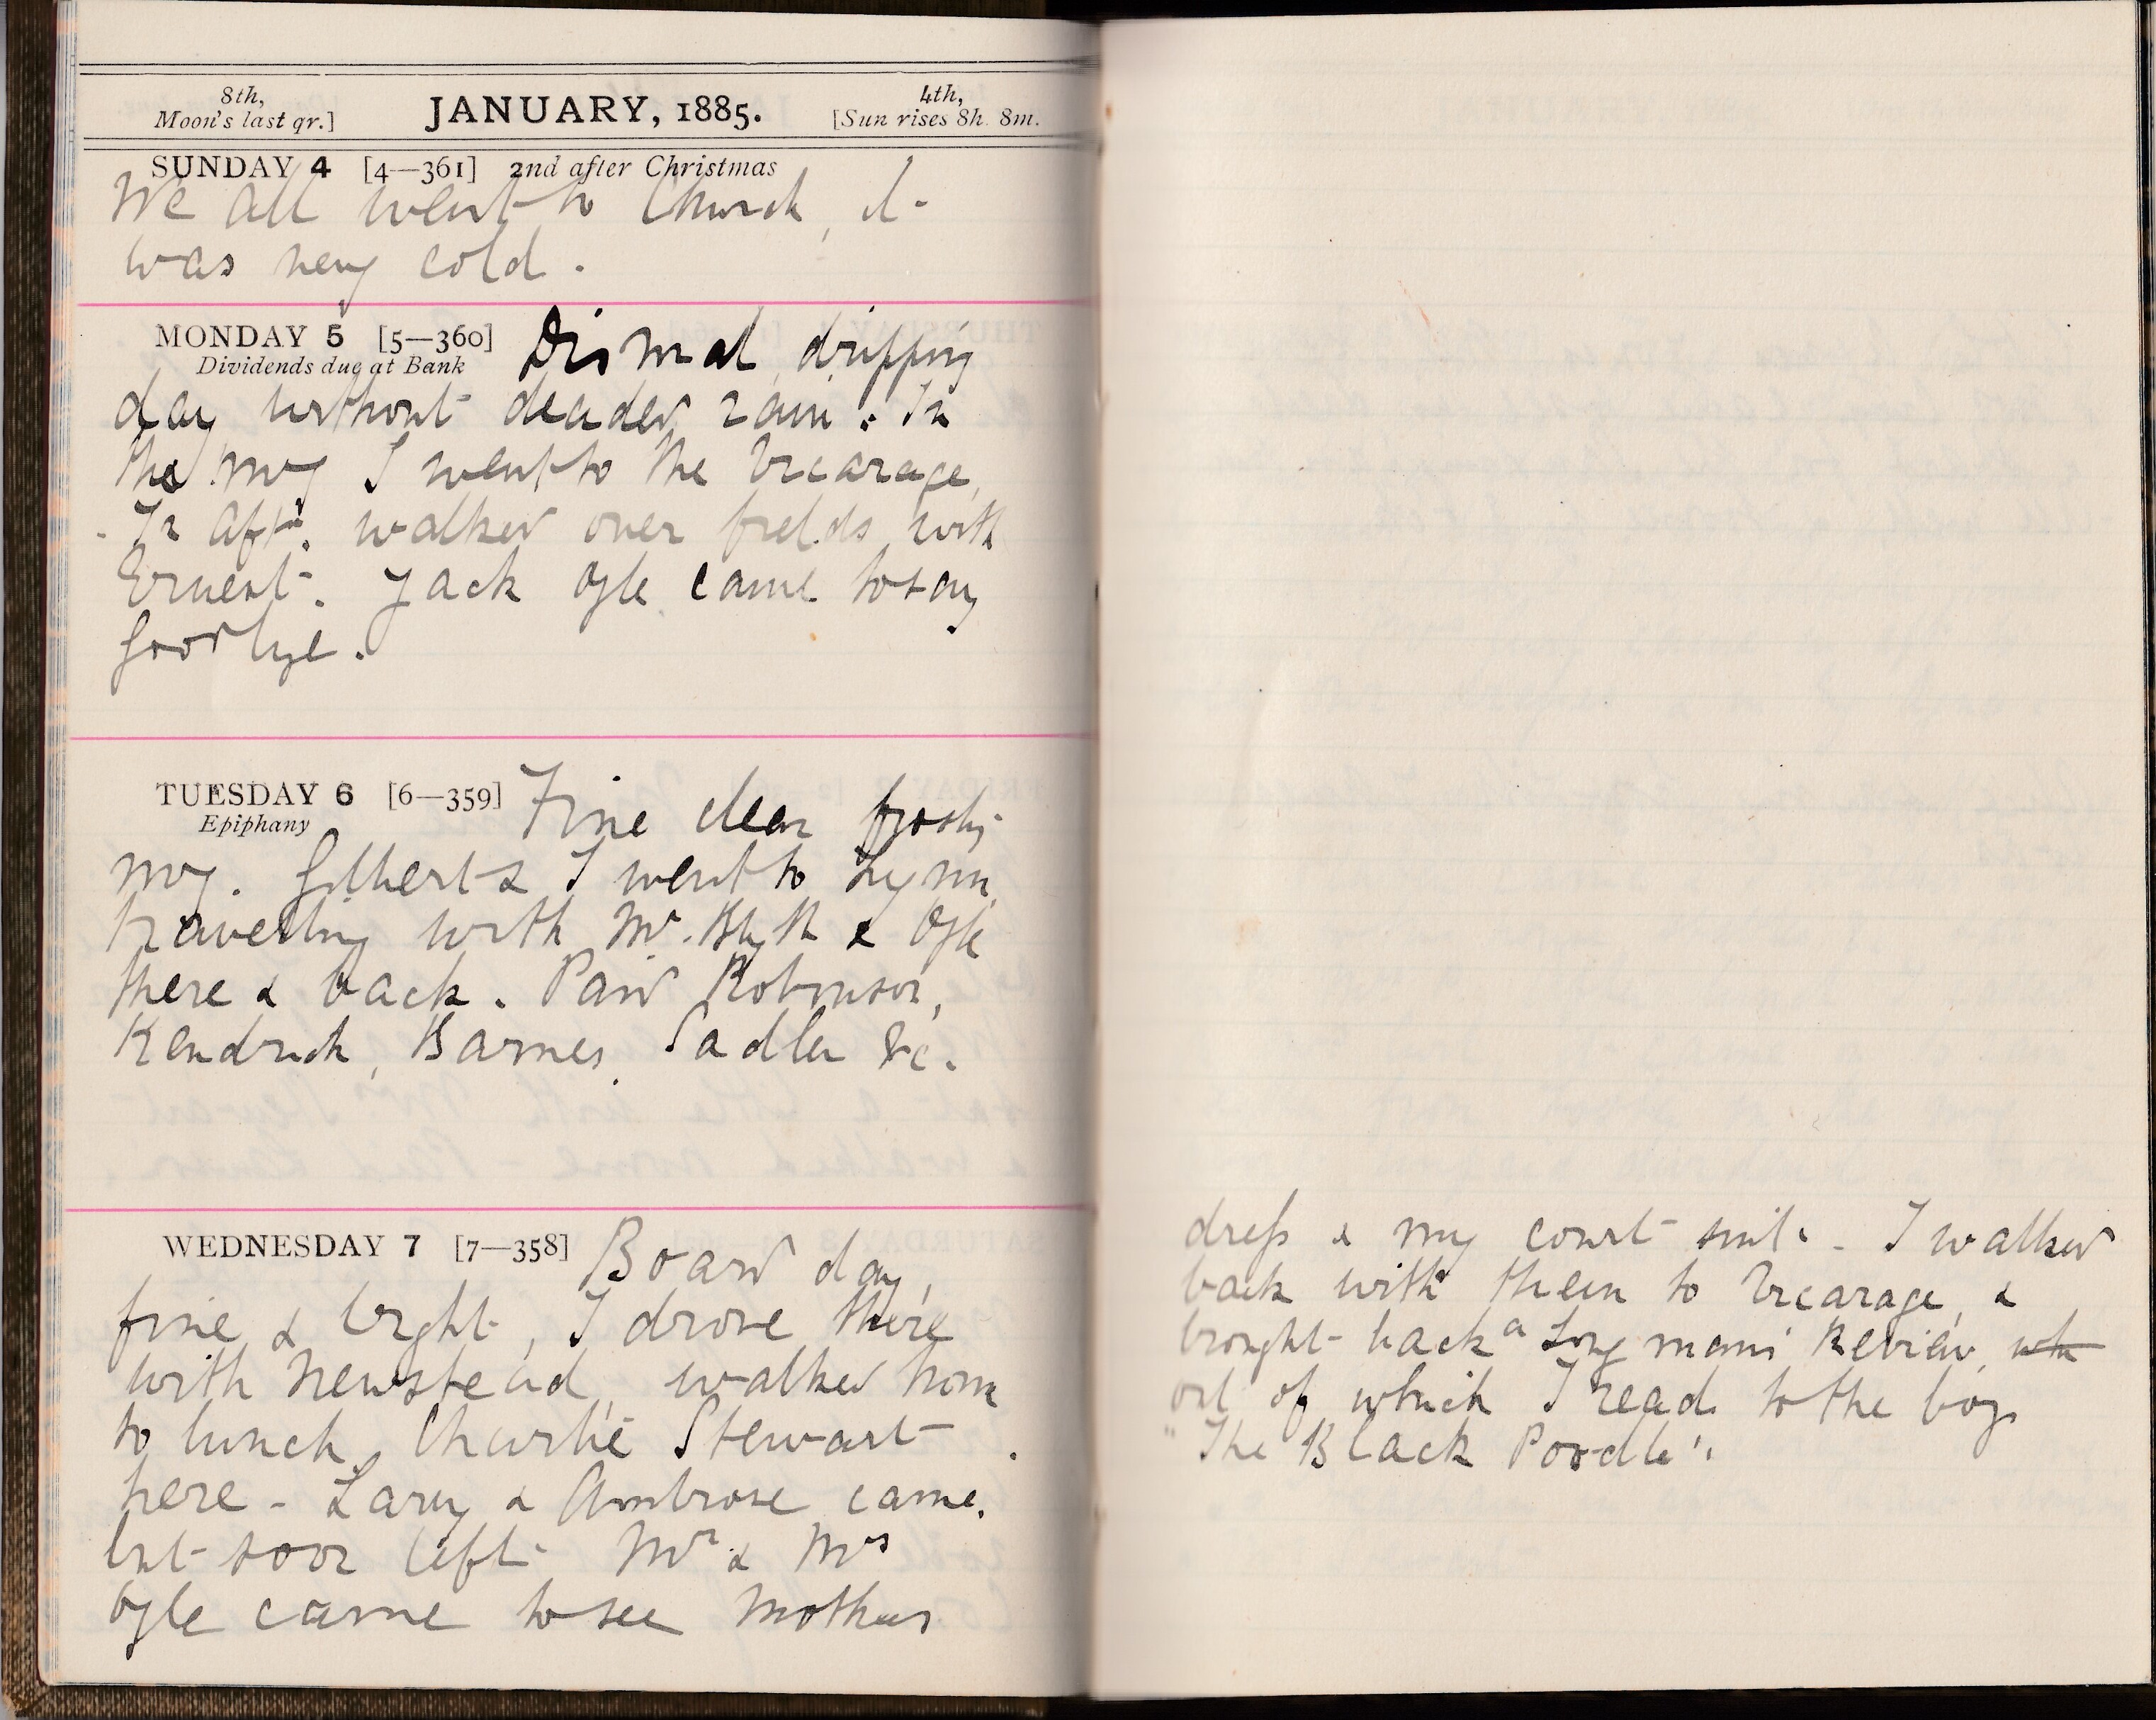 8th,
Moon's last qr.]
JANUARY, 1885.
4th,
[Sun rises 8h. 8m.
SUNDAY 4 [4—361] 2nd after Christmas
We all went to Church, it
was very cold.
MONDAY 5 [5—360] Dismal, dripping
Dividends due at Bank
day without decided rain. In
the mng I went to the Vicarage
. In aftn. walked over fields with
Ernest. Jack Ogle came to say
Good bye.
TUESDAY 6 [6—359] Fine clear frosty
Epiphany
mng. Gilbert & I went to Lynn
travelling with Mr. Blyth & Ogle
there & back. Paid Robinson,
Kendrick, Barnes, Sadler &c.
WEDNESDAY 7 [7—358] Board day,
fine & bright, I drove there
with Newstead, walked home
to lunch. Charlie Stewart
here - Lary & Ambrose came,
but soon left. Mr & Mrs
Ogle came to see Mothers
dress & my court suit. - I walked
back with them to Vicarage, &
brought back a Longmans Review, wh
out of which I read to the boys
"The Black Poodle".